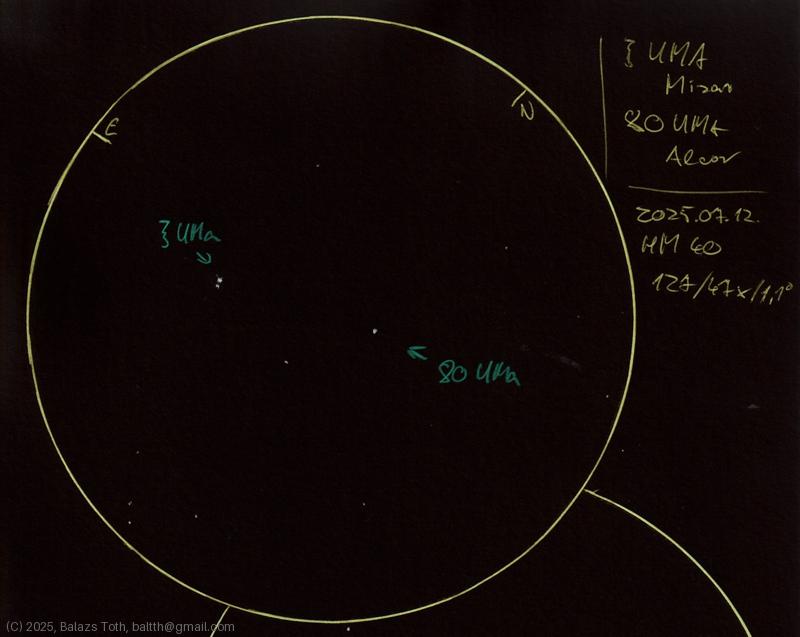 E
N
ζ UMA
Mizar
80 UMa
Alcor
2025.07.12.
HM 60
127/47x/1,1°
ζ UMa
80 UMa
(C) 2025, Balazs Toth, baltth@gmail.com